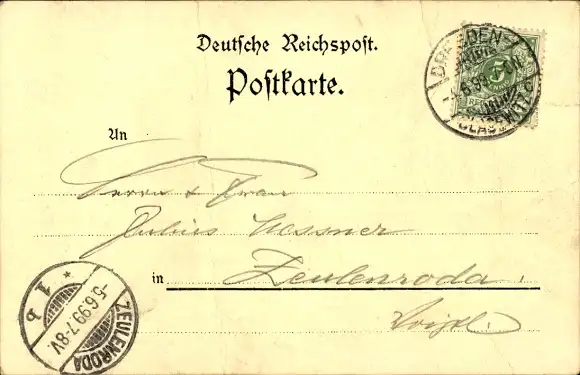 Deutsche Reichspost.
Postkarte.
DRESDEN
5
An
Herrn & Frau
Julius Messner
in Zeulenroda.
Voigtl.
ZEULENRODA
-5.6.99.7-8V.
* 1 b